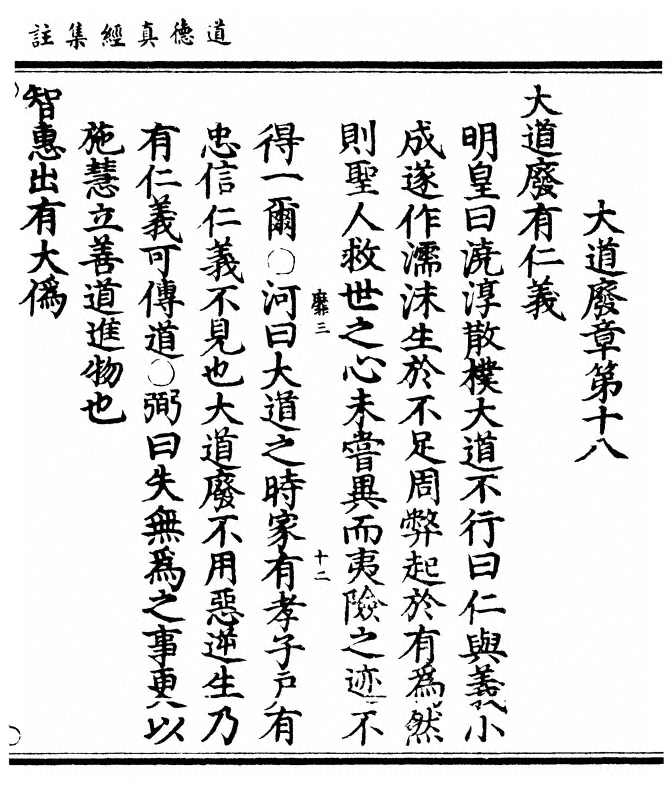 道德真經集註
大道廢章第十八
大道廢有仁義
明皇曰澆淳散樸大道不行曰仁與義小
成遂作濡沫生於不足周弊起於有為然
則聖人救世之心未嘗異而夷險之迹不
靡三
十二
得一爾○河曰大道之時家有孝子戶有
忠信仁義不見也大道廢不用惡逆生乃
有仁義可傳道○弼曰失無為之事更以
施慧立善道進物也
智惠出有大偽